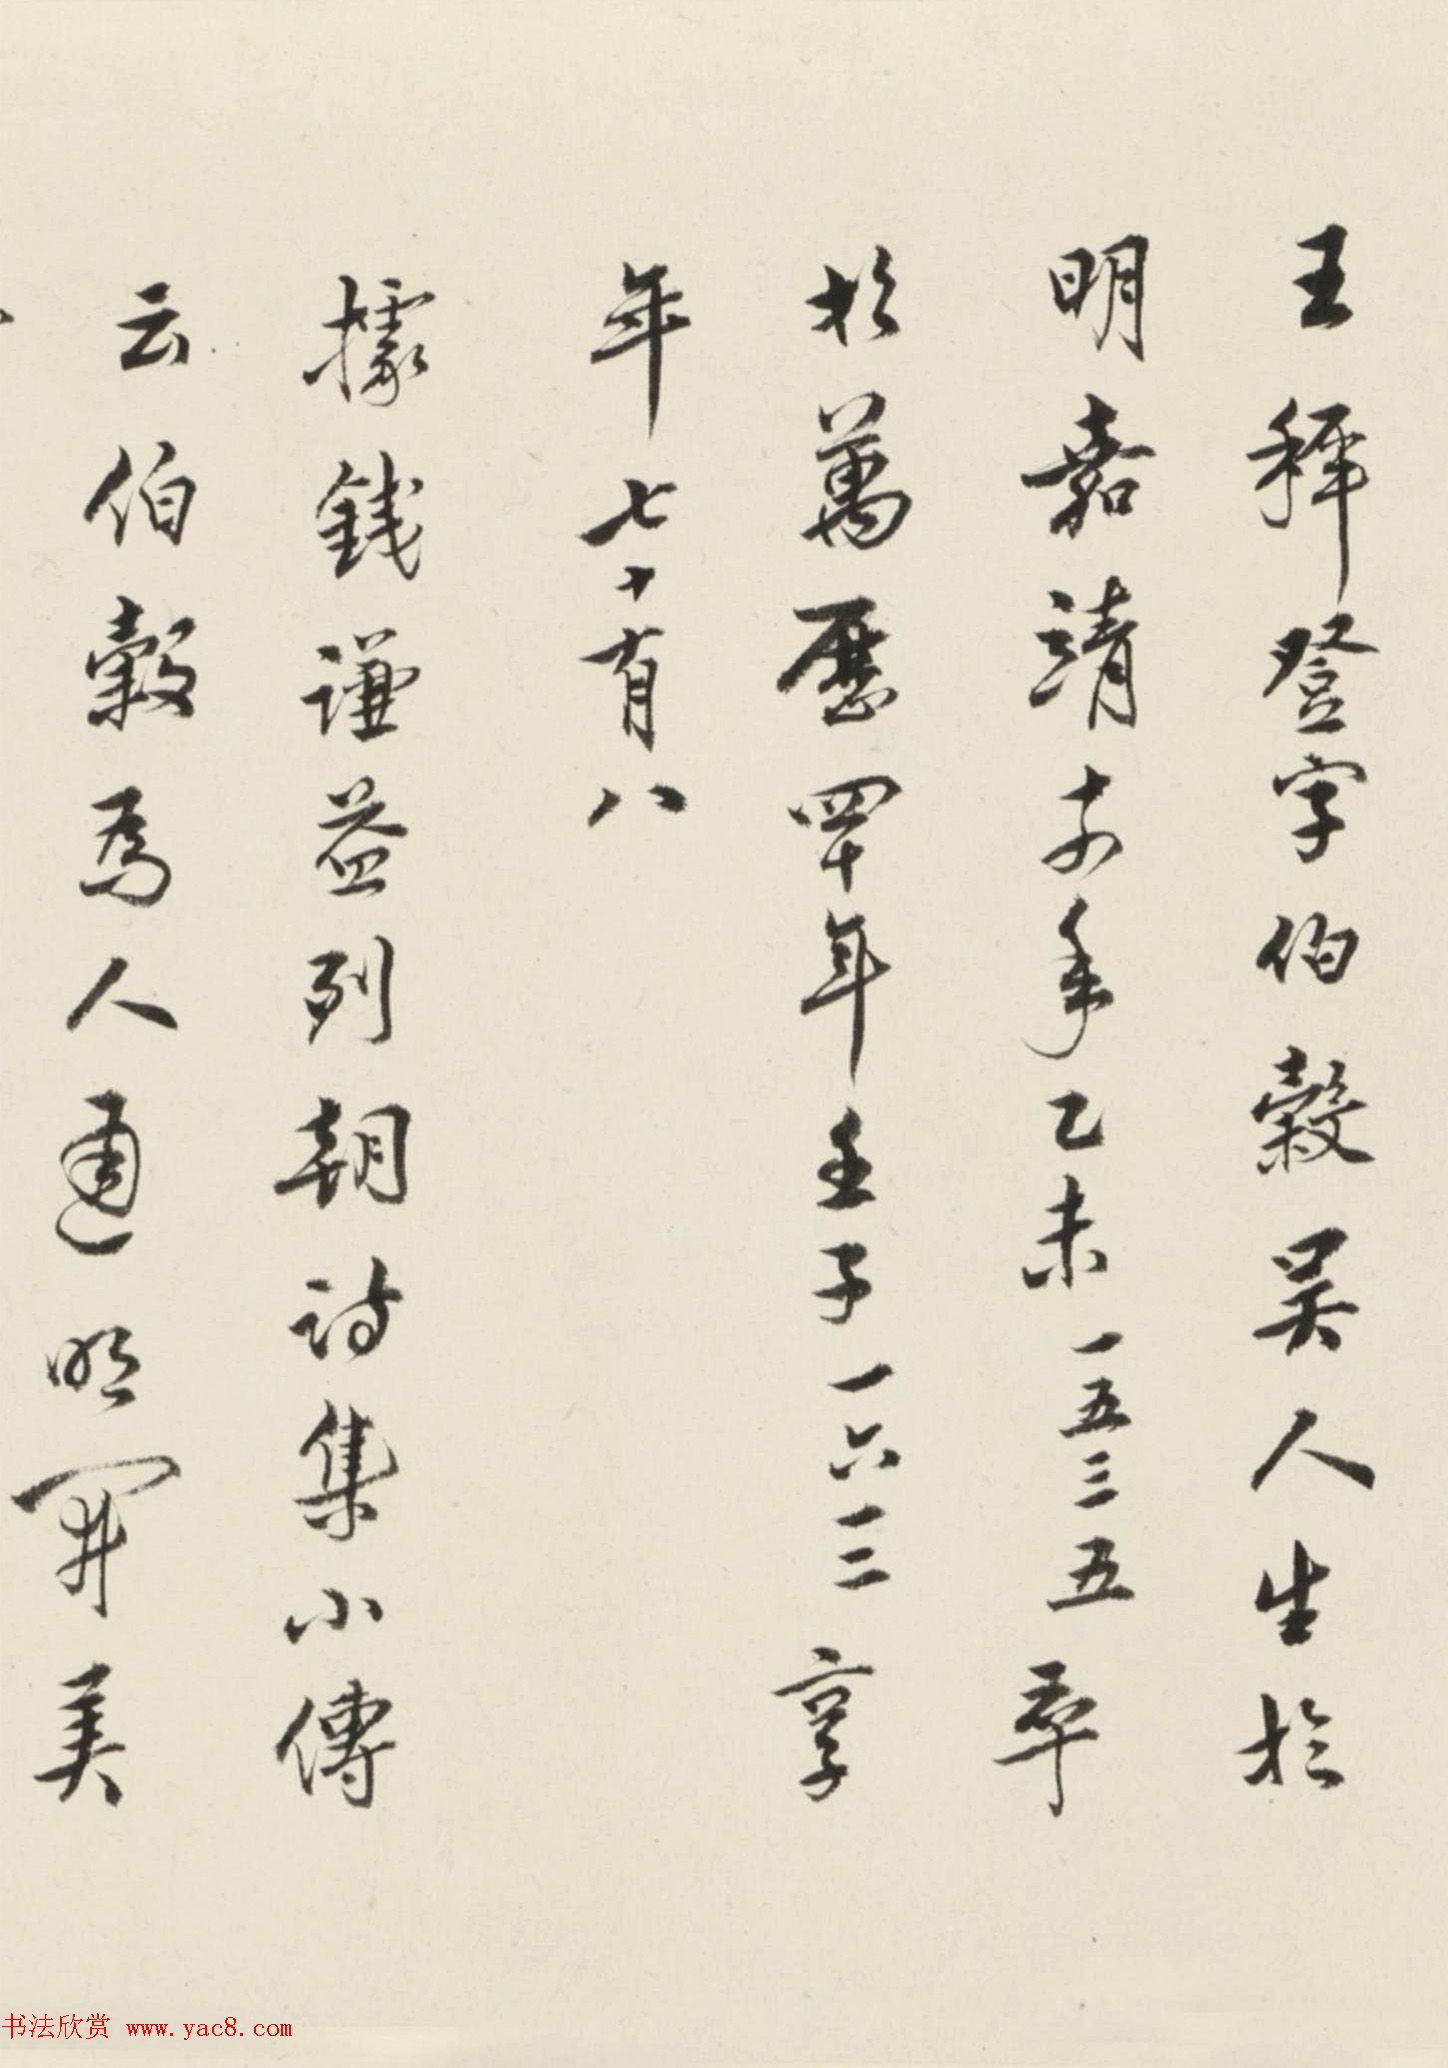 王稺登字伯穀吳人生於
明嘉靖十四年乙未一五三五卒
於萬歷四十年壬子一六一二享
年七十有八
據錢謙益列朝詩集小傳
云伯穀為人通明開美
书法欣赏 www.yac8.com